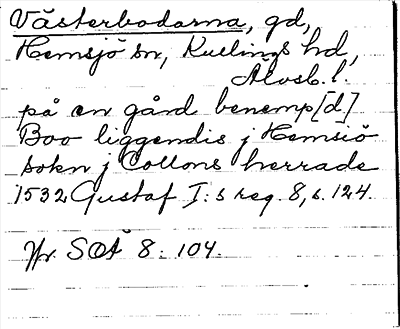 Västerbodarna, gd,
Hemsjö sn, Kullings hd,
Älvsb. l.
på en gård benemp[d]
Boo liggendis j Hemsiö
sokn j Collons herrade
1532 Gustaf I:s reg. 8, s. 124.
Jfr. SOÄ 8: 104.